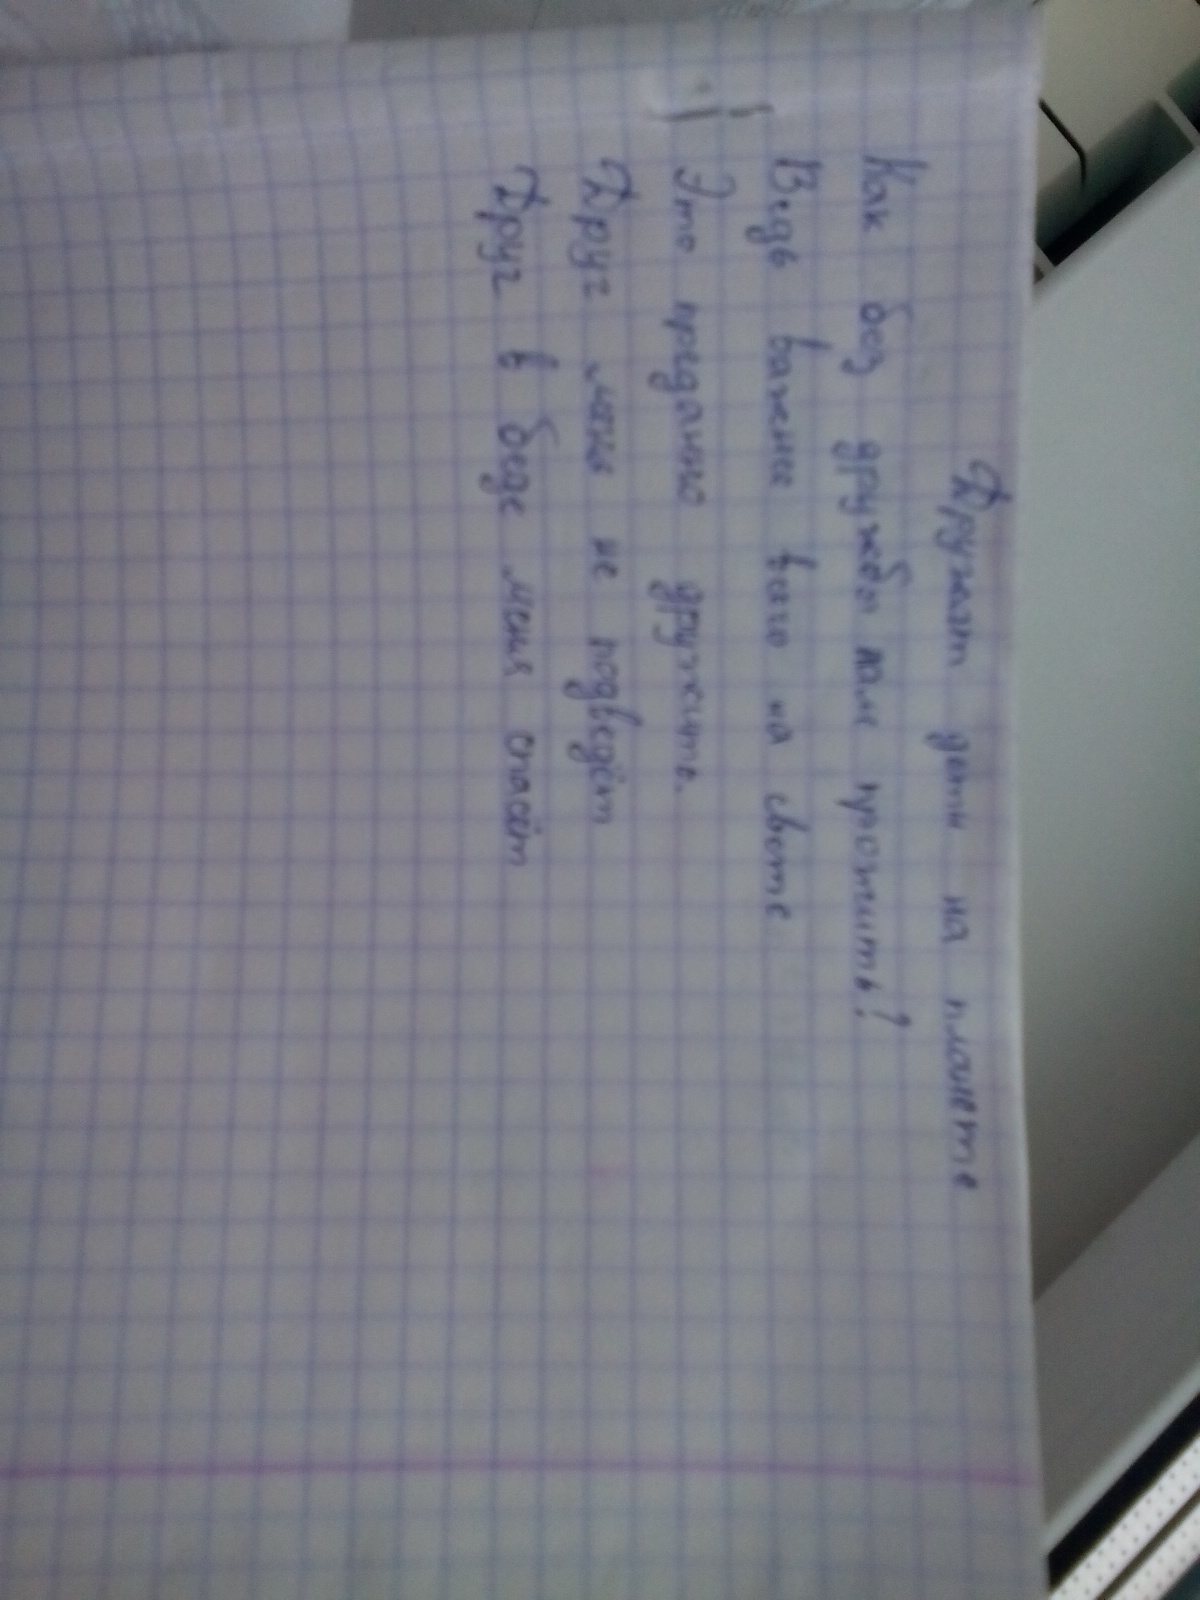 Дружат дети на планете
Как без дружбы нам прожить?
Ведь важнее всего на свете
Это преданно дружить.
Друг меня не подведёт
Друг в беде меня спасёт